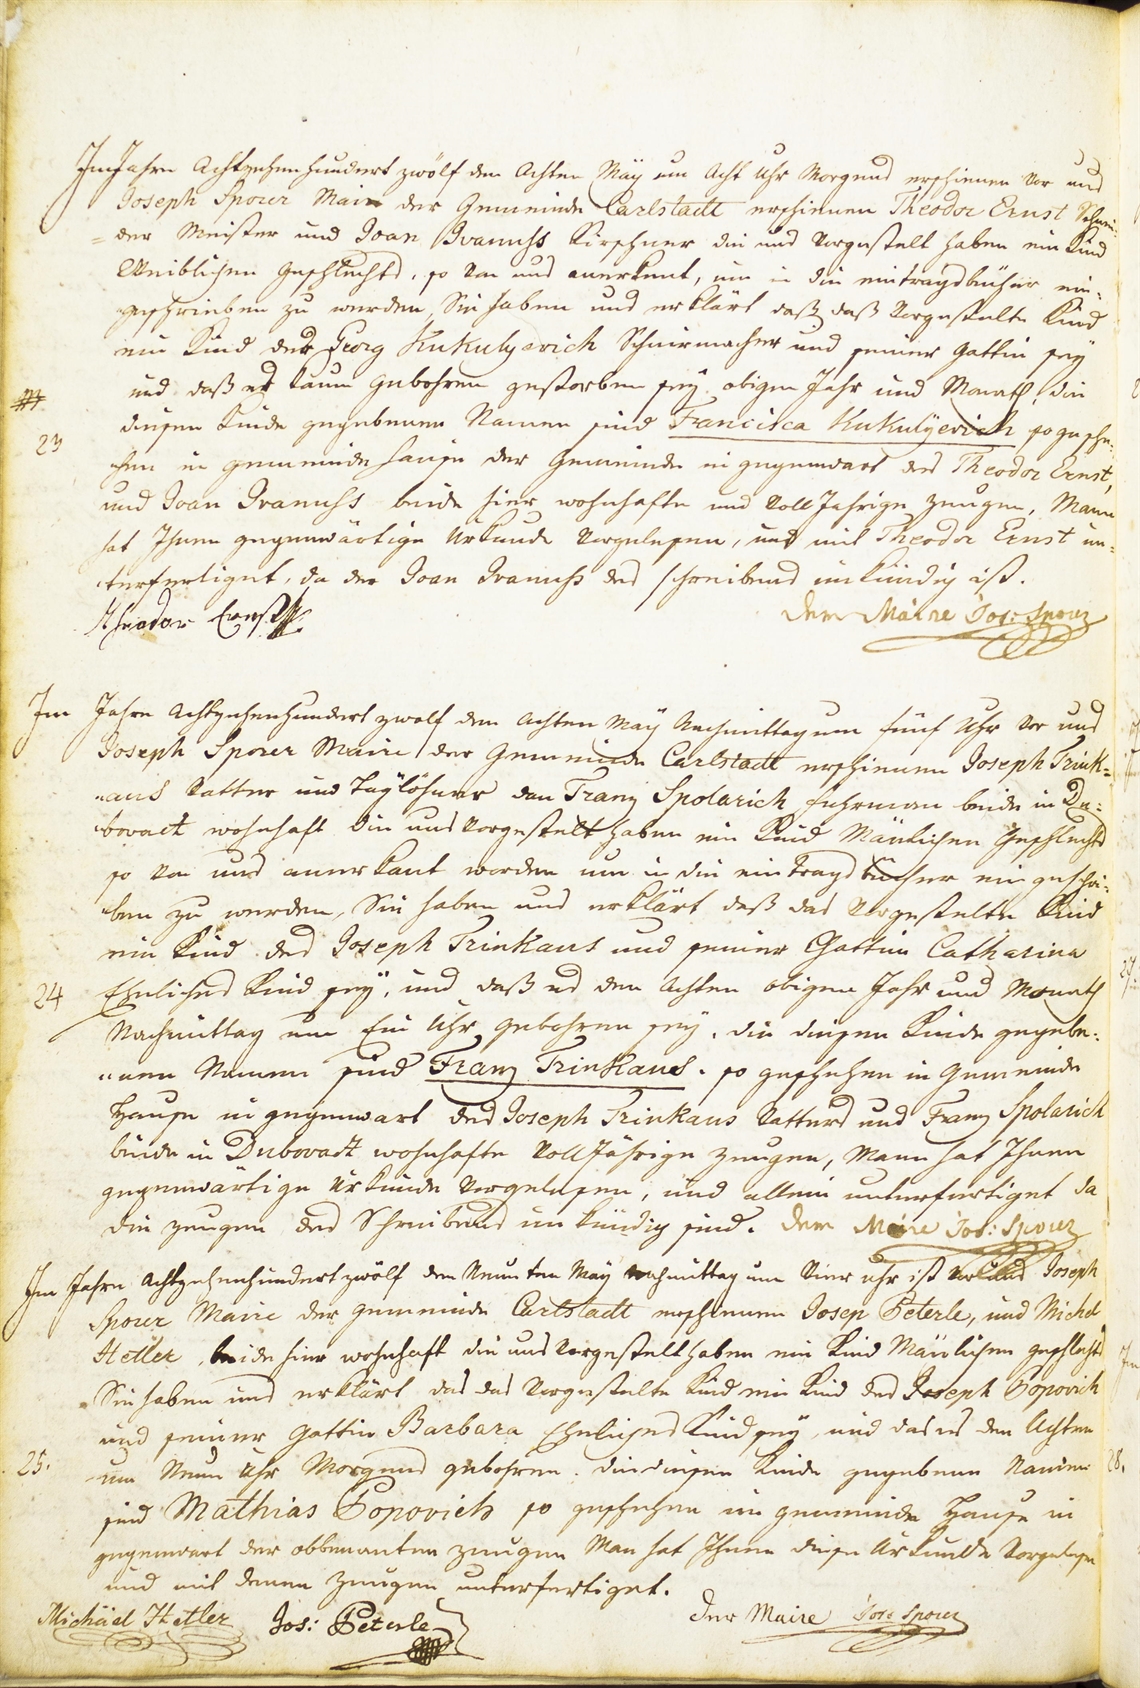 Im Jahre Achtzehenhundert zwölf den Achten May um Acht Uhr Morgens erschienen vor uns
Joseph Sporer Maire der Gemeinde Carlstadt erschienen Theodor Ernst Schnei-
=der Meister und Joan Ivanuhs Kirschner die uns vorgestelt haben ein Kind
Weiblichen Geschlechts, so von uns anerkent, um in die eintragsbücher ein-
geschrieben zu werden, Sie haben uns erklärt daß daß vorgestelte Kind
ein Kind des Georg Kukulyavich Schnirmacher und seiner Gattin sey
und daß es kaum gebohren gestorben sey. obigen Jahr und Monath, die
23
diesem Kinde gegebenen Namen sind Francisca Kukulyevich so gesche-
hen in gemeinde hause der Gemeinde in gegenwart des Theodor Ernst,
und Joan Ivanuhs beide hier wohnhafte und Voll Jahrige Zeugen, Mann
hat Ihnen gegenwärtige Urkunde vorgelesen, und mit Theodor Ernst un-
terfertiget, da der Joan Ivanuhs des schreibens unkündig ist.
Theodor Ernst
Der Maire Jos: Sporer
Im Jahre Achtzehenhundert zwolf den Achten May Nachmittag um fünf Uhr vor uns
Joseph Sporer Maire der Gemeinde Carlstadt erschienen Joseph Trink=
aus Vatter und Taglöhner dan Franz Spolarich fuhrman beide in Du-
bovatt wohnhaft die uns vorgestelt haben ein Kind Mänlichen Geschlechts
so von uns anerkant worden um in die eintrags bücher eingeschri-
ben zu werden, Sie haben uns erklärt daß das vorgestelte Kind
ein Kind des Joseph Trinkaus und seiner Gattin Catharina
24
Ehliches Kind sey, und daß es den Achten obigen Jahr und Monath
Nachmittag um Ein Uhr gebohren sey, die diesen Kinde gegebe-
nen Namen sind Franz Trinkaus. so geschehen in Gemeinde
Hause in gegenwart des Joseph Trinkaus Vatters und Franz Spolarich
beide in Dubovatt wohnhafte Voll Jährige zeugen, Mann hat Ihnen
gegenwärtige Urkunde vorgelesen, und allein unterfertiget da
die zeugen des Schreibens unkündig sind. Der Maire Jos: Sporer
Im Jahre Achtzehenhundert zwölf den Neunten May nachmittag um Vier uhr ist vor uns Joseph
Sporer Maire der gemeinde Carlstadt erschienen Josep Peterle, und Michel
Hetler, beide hier wohnhaft die uns vorgestelt haben ein Kind Mänlichen geschlechts
Sie haben uns erklärt das das vorgestelte Kind ein Kind des Joseph Popovich
und seiner Gattin Barbara Ehliches Kind sey, und das es den Achten
25.
um Neun Uhr Morgens gebohren. die diesen Kinde gegebene Namen
sind Mathias Popovich so geschehen im gemeinde Hause in
gegenwart der obbenanten zeugen Man hat Ihnen diese Urkunde vorgelesen
und mit denen Zeugen unterfertiget.
Michäel Hetler Jos: Peterle
Der Maire Jos: Sporer